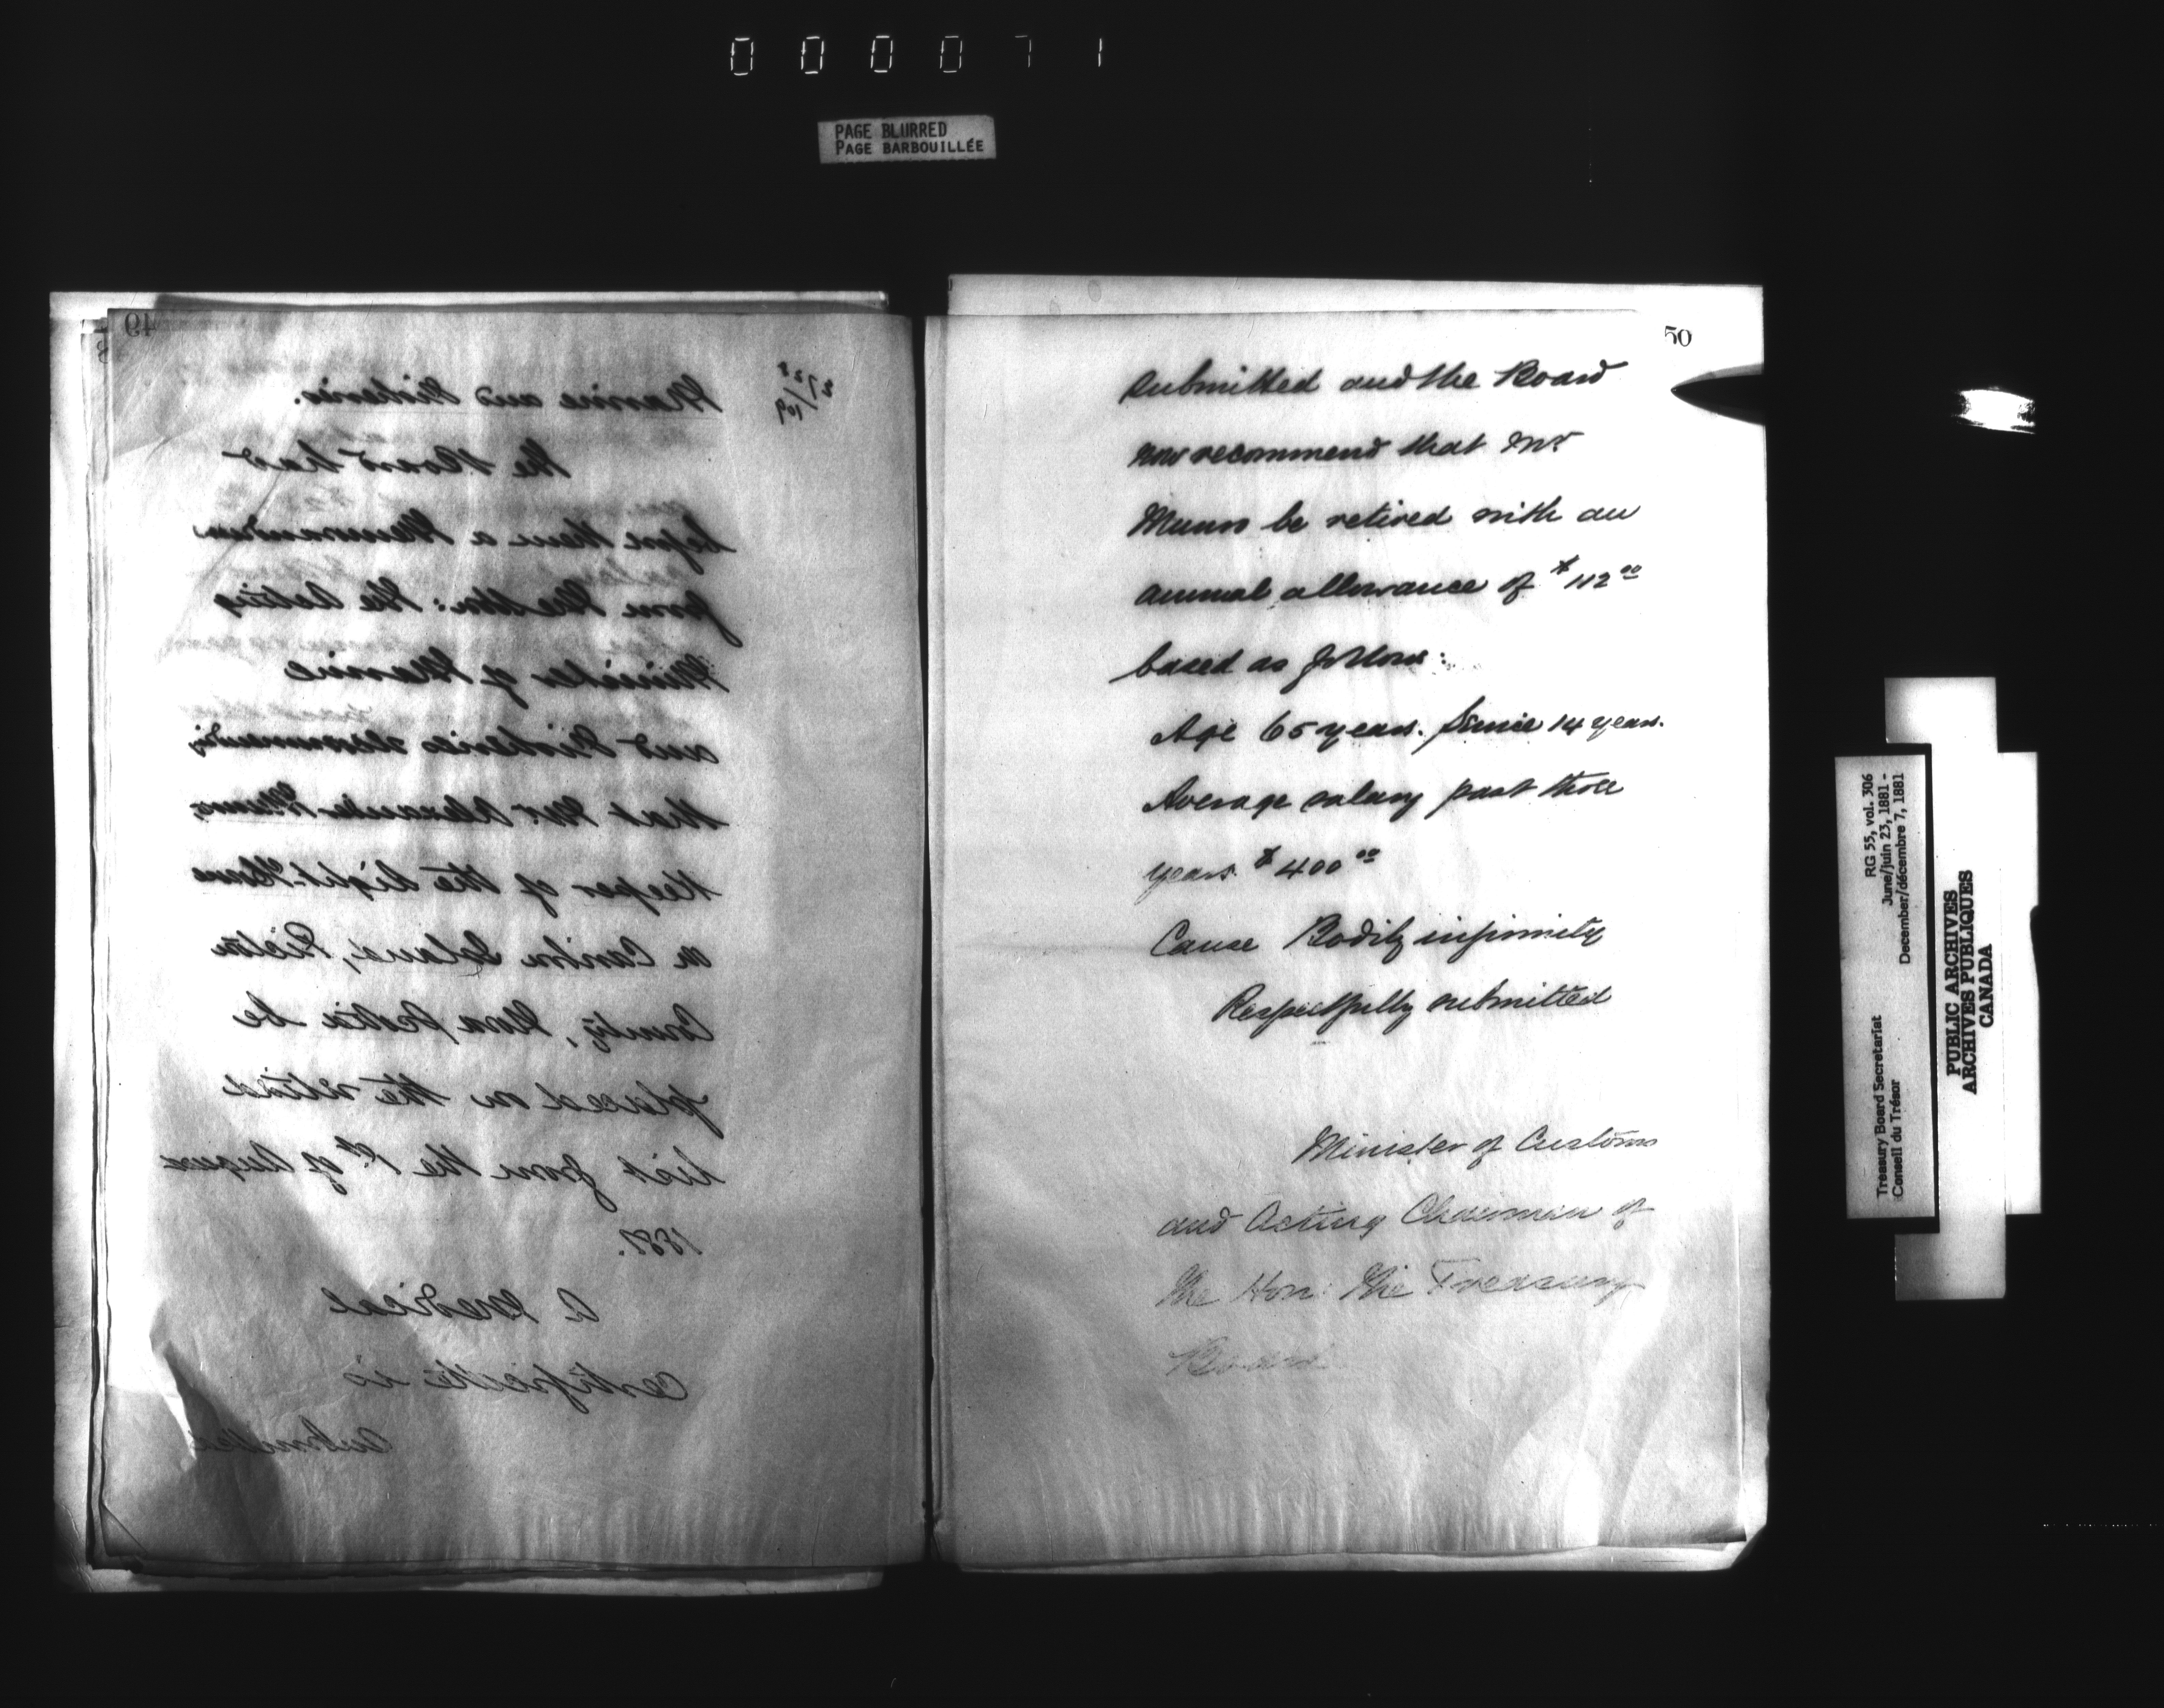 000071
PAGE BLURRED
PAGE BARBOUILLÉE
49
Marine and Fisheries.
The Board had
before them a Memorandum
from the Hon: the Acting
Minister of Marine
and Fisheries recommending
that Mr. Alexander Munro
Keeper of the Light House
on Caribou Island, Pictou
County, Nova Scotia be
placed on the retired
list from the 1st of August
1881.
A Medical
Certificate is
submitted
50
submitted and the Board
now recommend that Mr
Munro be retired with an
annual allowance of $112.00
based as follows:
Age 65 years. Service 14 years.
Average salary past three
years $400.00
Cause Bodily infirmity
Respectfully submitted
Minister of Customs
and Acting Chairman of
the Hon: the Treasury
Board
Treasury Board Secretariat
Conseil du Trésor
RG 55, vol. 306
June/juin 23, 1881 -
December/décembre 7, 1881
PUBLIC ARCHIVES
ARCHIVES PUBLIQUES
CANADA